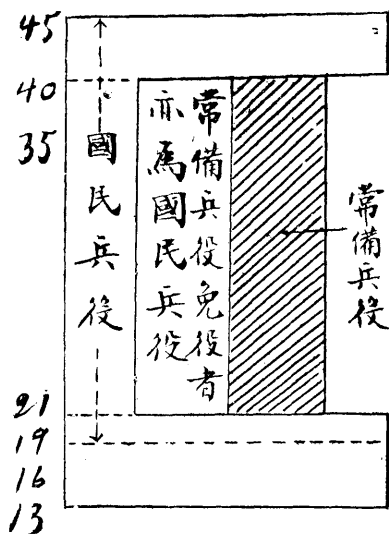 45
40
35
21
19
16
13
國民兵役
常備兵役免役者
亦爲國民兵役
常備兵役